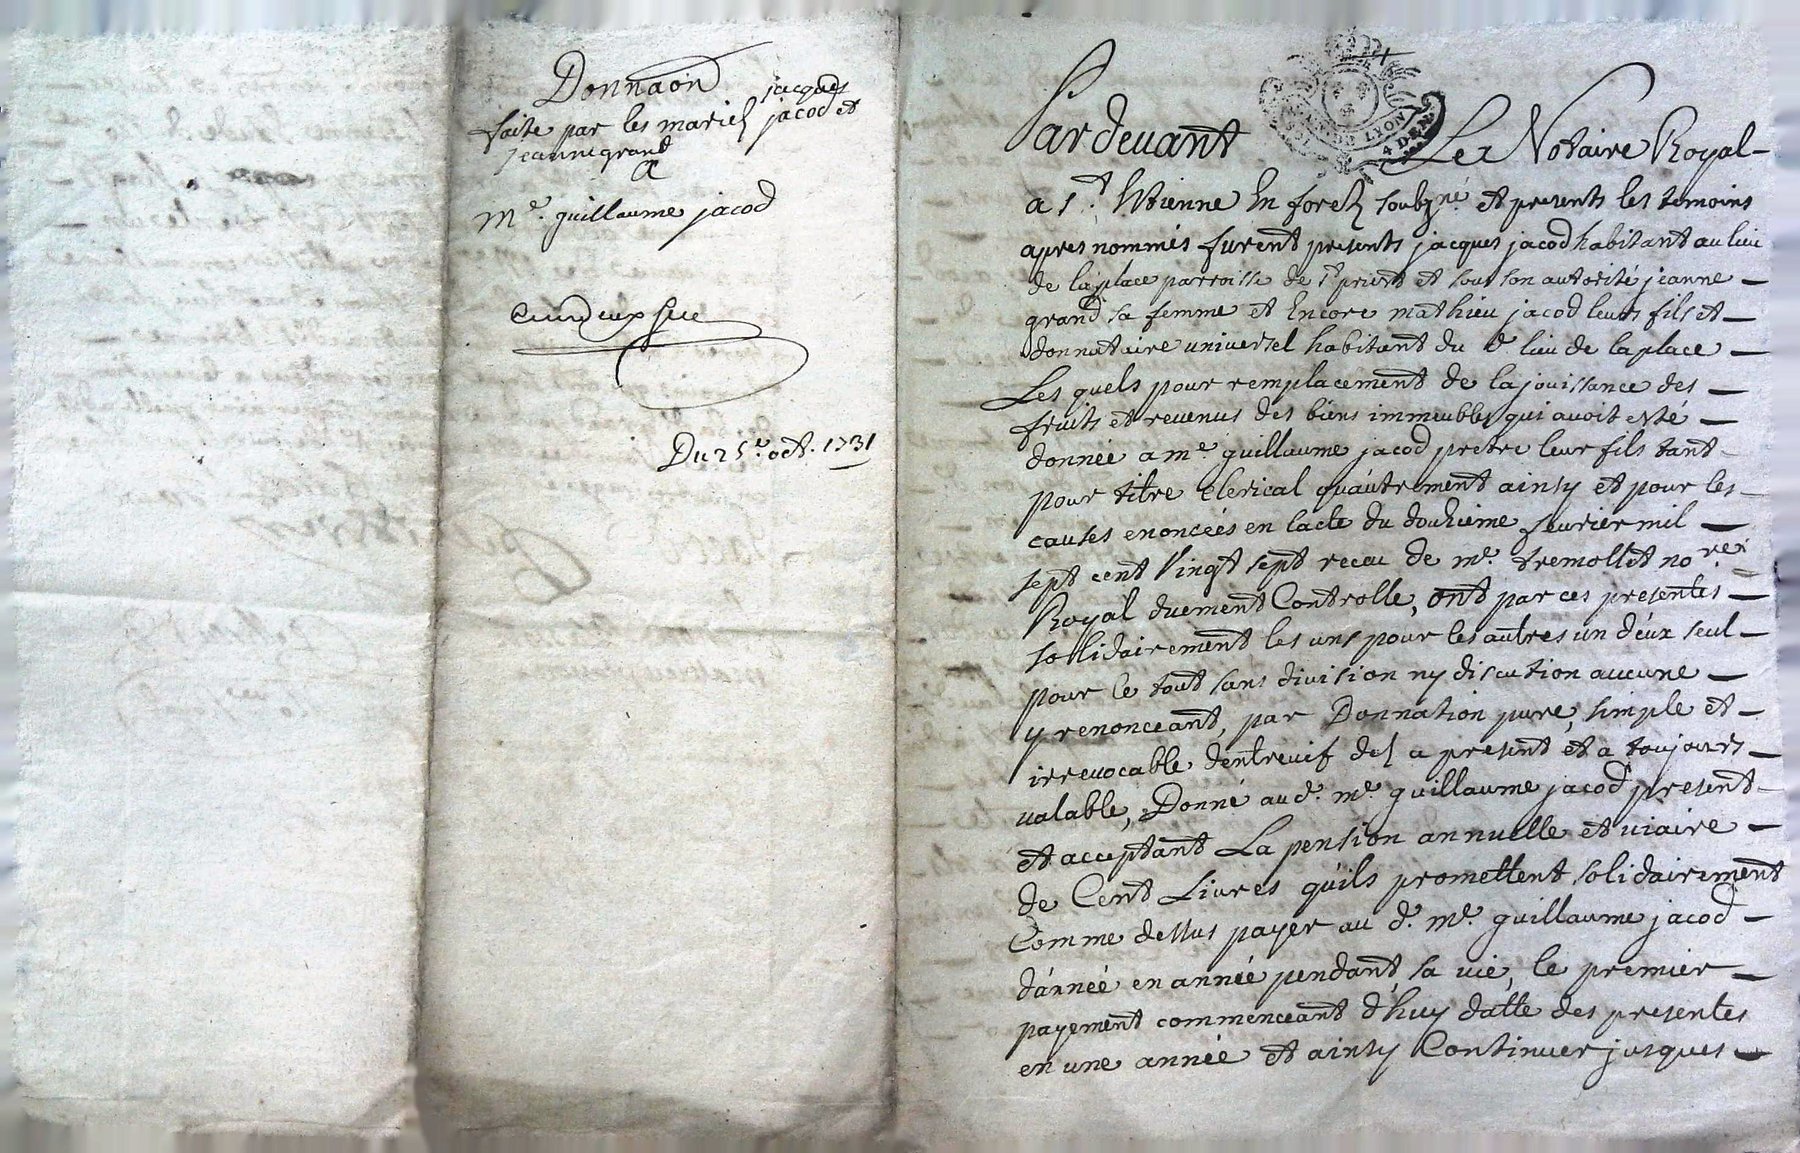 Donnaon
faite par les mariez jacques
jacod et
jeanne grand
a
Me. guillaume jacod
Du 25e. oct. 1731
GENER. DE LYON
4 DEN.
Pardevant Le Notaire Royal
a St. Etienne En forez soubzne. et presents les temoins
apres nommés furent presents jacques jacod habitant au lieu
de laplace parroisse de St. priest et sous son autorité jeanne
grand sa femme et Encore mathieu jacod leurs fils et
donnataire universel habitant du d. lieu de laplace
Les quels pour remplacement de la jouissance des
fruits et revenus des biens immeubles qui avoit esté
donnée a me. guillaume jacod pretre leur fils tant
pour titre clerical qu'autrement ainsy et pour les
causes enoncées en lacte du douzieme feuvrier mil
sept cent Vingt sept receu de me. tremollet nore.
Royal duement Controlle, ont par ces presentes
solidairement les uns pour les autres un déux seul
pour le tout sans division ny discution aucune
y renonceant, par Donnation pure, simple et
irrevocable d'entrevif dez a present et a toujours
valable, Donné au d. me. guillaume jacod present
et acceptant La pension annuelle et viaire
de Cent Livres qu'ils promettent solidairement
Comme dessus payer au d. me. guillaume jacod
d'année en année pendant sa vie, le premier
payement commenceant d'huy datte des presentes
en une année et ainsy Continuer jusques